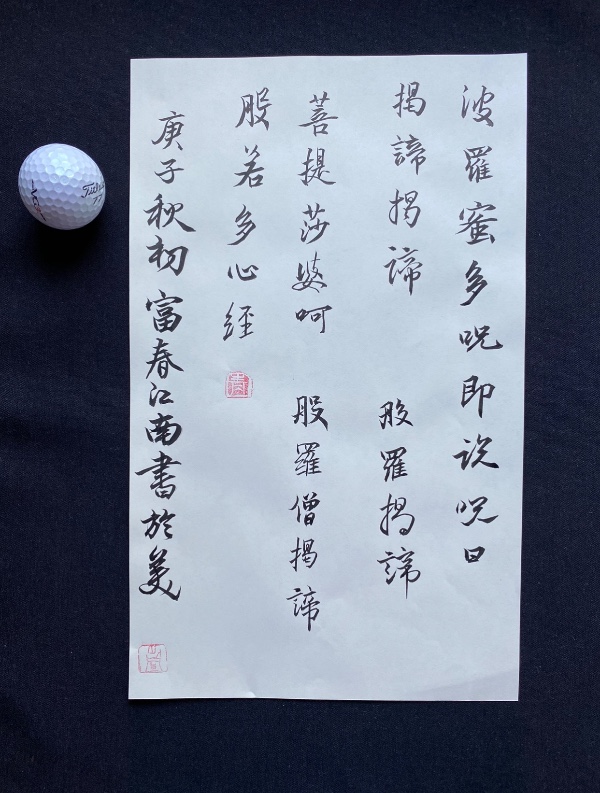 波羅蜜多呪即说呪曰
揭諦揭諦 般羅揭諦
菩提莎婆呵 般羅僧揭諦
般若多心經
庚子秋初富春江南書於美